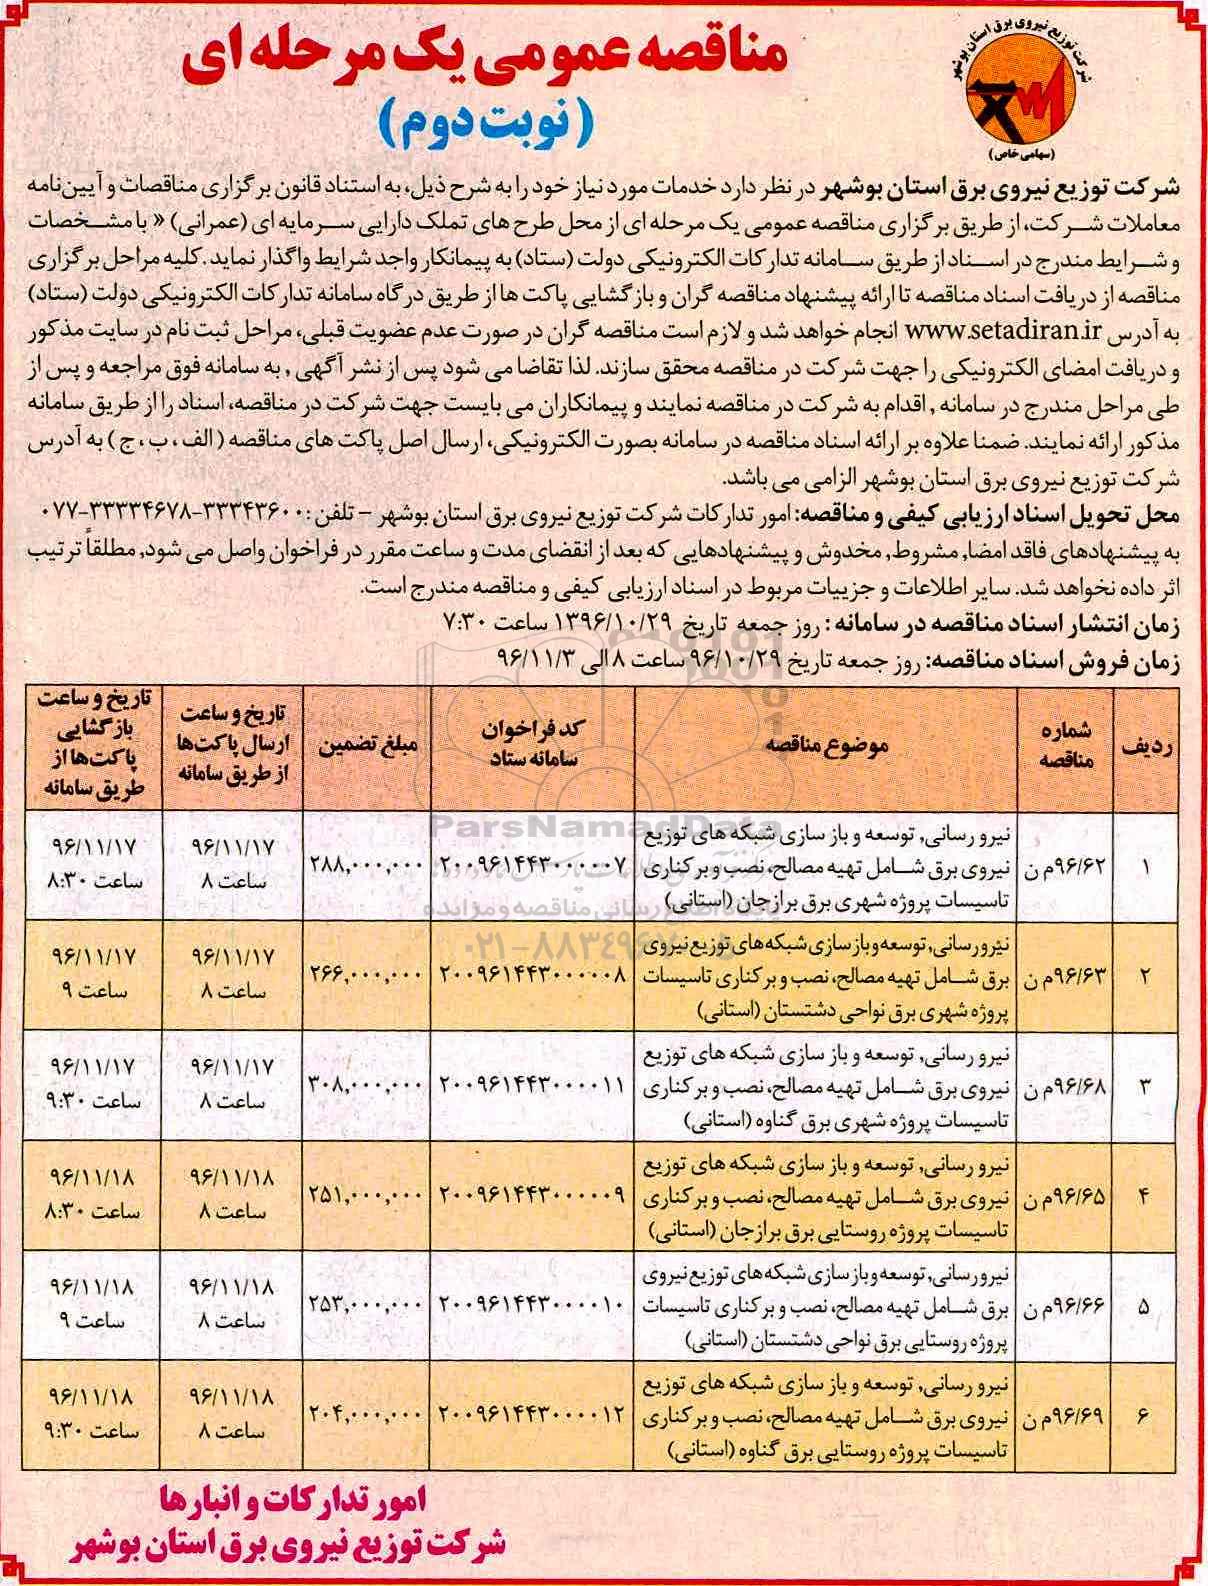 شرکت توزیع نیروی برق استان بوشهر
(سهامی خاص)
مناقصه عمومی یک مرحله ای
(نوبت دوم)
شرکت توزیع نیروی برق استان بوشهر در نظر دارد خدمات مورد نیاز خود را به شرح ذیل، به استناد قانون برگزاری مناقصات و آیین‌نامه
معاملات شرکت، از طریق برگزاری مناقصه عمومی یک مرحله ای از محل طرح های تملک دارایی سرمایه ای (عمرانی) « با مشخصات
و شرایط مندرج در اسناد از طریق سامانه تدارکات الکترونیکی دولت (ستاد) به پیمانکار واجد شرایط واگذار نماید. کلیه مراحل برگزاری
مناقصه از دریافت اسناد مناقصه تا ارائه پیشنهاد مناقصه گران و بازگشایی پاکت ها از طریق درگاه سامانه تدارکات الکترونیکی دولت (ستاد)
به آدرس www.setadiran.ir انجام خواهد شد و لازم است مناقصه گران در صورت عدم عضویت قبلی، مراحل ثبت نام در سایت مذکور
و دریافت امضای الکترونیکی را جهت شرکت در مناقصه محقق سازند. لذا تقاضا می شود پس از نشر آگهی , به سامانه فوق مراجعه و پس از
طی مراحل مندرج در سامانه , اقدام به شرکت در مناقصه نمایند و پیمانکاران می بایست جهت شرکت در مناقصه، اسناد را از طریق سامانه
مذکور ارائه نمایند. ضمنا علاوه بر ارائه اسناد مناقصه در سامانه بصورت الکترونیکی، ارسال اصل پاکت های مناقصه ( الف ، ب ، ج ) به آدرس
شرکت توزیع نیروی برق استان بوشهر الزامی می باشد.
محل تحویل اسناد ارزیابی کیفی و مناقصه: امور تدارکات شرکت توزیع نیروی برق استان بوشهر – تلفن: ۳۳۳۴۳۶۰۰-۳۳۳۳۴۶۷۸-۰۷۷
به پیشنهادهای فاقد امضا, مشروط, مخدوش و پیشنهادهایی که بعد از انقضای مدت و ساعت مقرر در فراخوان واصل می شود, مطلقاً ترتیب
اثر داده نخواهد شد. سایر اطلاعات و جزییات مربوط در اسناد ارزیابی کیفی و مناقصه مندرج است.
زمان انتشار اسناد مناقصه در سامانه : روز جمعه تاریخ ۱۳۹۶/۱۰/۲۹ ساعت ۷:۳۰
زمان فروش اسناد مناقصه: روز جمعه تاریخ ۹۶/۱۰/۲۹ ساعت ۸ الی ۹۶/۱۱/۳
ردیف | شماره مناقصه | موضوع مناقصه | کد فراخوان سامانه ستاد | مبلغ تضمین | تاریخ و ساعت ارسال پاکت‌ها از طریق سامانه | تاریخ و ساعت بازگشایی پاکت‌ها از طریق سامانه
۱ | ۹۶/۶۲م ن | نیرو رسانی, توسعه و باز سازی شبکه های توزیع نیروی برق شامل تهیه مصالح، نصب و برکناری تاسیسات پروژه شهری برق برازجان (استانی) | ۲۰۰۹۶۱۴۴۳۰۰۰۰۰۷ | ۲۸۸,۰۰۰,۰۰۰ | ۹۶/۱۱/۱۷ ساعت ۸ | ۹۶/۱۱/۱۷ ساعت ۸:۳۰
۲ | ۹۶/۶۳م ن | نیرورسانی, توسعه و باز سازی شبکه های توزیع نیروی برق شامل تهیه مصالح، نصب و برکناری تاسیسات پروژه شهری برق نواحی دشتستان (استانی) | ۲۰۰۹۶۱۴۴۳۰۰۰۰۰۸ | ۲۶۶,۰۰۰,۰۰۰ | ۹۶/۱۱/۱۷ ساعت ۸ | ۹۶/۱۱/۱۷ ساعت ۹
۳ | ۹۶/۶۸م ن | نیرو رسانی, توسعه و باز سازی شبکه های توزیع نیروی برق شامل تهیه مصالح، نصب و برکناری تاسیسات پروژه شهری برق گناوه (استانی) | ۲۰۰۹۶۱۴۴۳۰۰۰۰۱۱ | ۳۰۸,۰۰۰,۰۰۰ | ۹۶/۱۱/۱۷ ساعت ۸ | ۹۶/۱۱/۱۷ ساعت ۹:۳۰
۴ | ۹۶/۶۵م ن | نیرو رسانی, توسعه و باز سازی شبکه های توزیع نیروی برق شامل تهیه مصالح، نصب و برکناری تاسیسات پروژه روستایی برق برازجان (استانی) | ۲۰۰۹۶۱۴۴۳۰۰۰۰۰۹ | ۲۵۱,۰۰۰,۰۰۰ | ۹۶/۱۱/۱۸ ساعت ۸ | ۹۶/۱۱/۱۸ ساعت ۸:۳۰
۵ | ۹۶/۶۶م ن | نیرورسانی, توسعه و باز سازی شبکه های توزیع نیروی برق شامل تهیه مصالح، نصب و برکناری تاسیسات پروژه روستایی برق نواحی دشتستان (استانی) | ۲۰۰۹۶۱۴۴۳۰۰۰۰۱۰ | ۲۵۳,۰۰۰,۰۰۰ | ۹۶/۱۱/۱۸ ساعت ۸ | ۹۶/۱۱/۱۸ ساعت ۹
۶ | ۹۶/۶۹م ن | نیرو رسانی, توسعه و باز سازی شبکه های توزیع نیروی برق شامل تهیه مصالح، نصب و برکناری تاسیسات پروژه روستایی برق گناوه (استانی) | ۲۰۰۹۶۱۴۴۳۰۰۰۰۱۲ | ۲۰۴,۰۰۰,۰۰۰ | ۹۶/۱۱/۱۸ ساعت ۸ | ۹۶/۱۱/۱۸ ساعت ۹:۳۰
ParsNamadData
امور تدارکات و انبارها
شرکت توزیع نیروی برق استان بوشهر